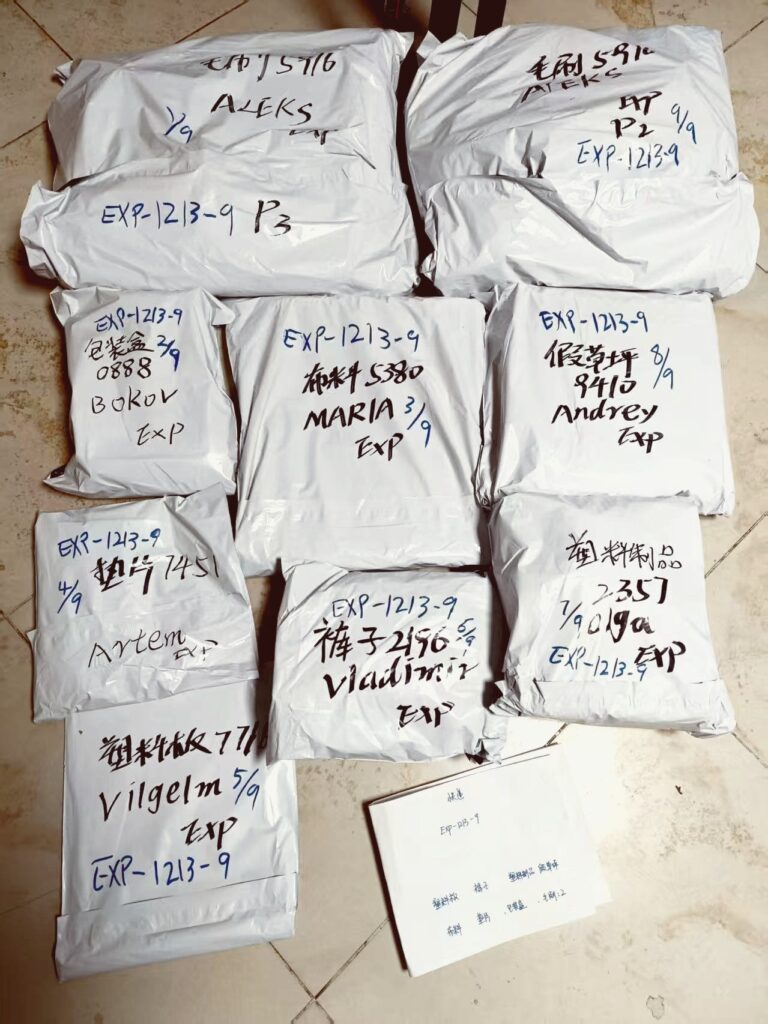 毛刷5916
ALEKS
1/9
EXP
EXP-1213-9 P3
毛刷5916
ALEKS
EXP
P2 9/9
EXP-1213-9
EXP-1213-9
包装盒 2/9
0888
BOKOV
EXP
EXP-1213-9
布料5380
MARIA 3/9
EXP
EXP-1213-9
假草坪 8/9
9410
Andrey
EXP
EXP-1213-9
4/9 垫片7451
Artem
EXP
EXP-1213-9
裤子2196
Vladimir
EXP
塑料制品
2357
7/9 Olga
EXP
EXP-1213-9
塑料板
Vilgelm 5/9
EXP
EXP-1213-9
快递
EXP-1213-9
塑料板 裤子 塑料制品 假草坪
布料 垫片 包装盒 毛刷:2